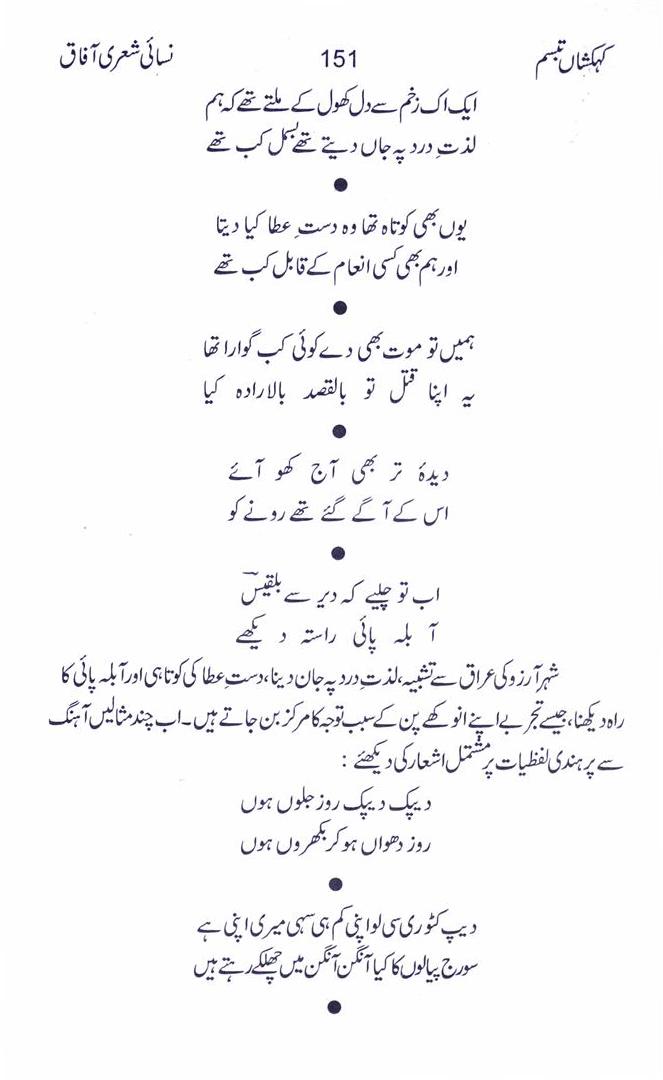 کہکشاں تبسم 151 نسائی شعری آفاق
ایک اک زخم سے دل کھول کے ملتے تھے کہ ہم
لذتِ درد پہ جاں دیتے تھے بسمل کب تھے
●
یوں بھی کوتاہ تھا وہ دستِ عطا کیا دیتا
اور ہم بھی کسی انعام کے قابل کب تھے
●
ہمیں تو موت بھی دے کوئی کب گوارا تھا
یہ اپنا قتل تو بالقصد بالارادہ کیا
●
دیدۂ تر بھی آج کھو آئے
اس کے آگے گئے تھے رونے کو
●
اب تو چلیے کہ دیر سے بلقیسؔ
آبلہ پائی راستہ دیکھے
شہرِ آرزو کی عراق سے تشبیہ، لذتِ درد پہ جان دینا، دستِ عطا کی کوتاہی اور آبلہ پائی کا
راہ دیکھنا، جیسے تجربے اپنے انوکھے پن کے سبب توجہ کا مرکز بن جاتے ہیں۔ اب چند مثالیں آہنگ
سے پر ہندی لفظیات پر مشتمل اشعار کی دیکھئے :
دیپک دیپک روز جلوں ہوں
روز دھواں ہوکر بکھروں ہوں
●
دیپ کٹوری سی لو اپنی کم ہی سہی میری اپنی ہے
سورج پیالوں کا کیا آنگن آنگن میں چھلکے رہتے ہیں
●